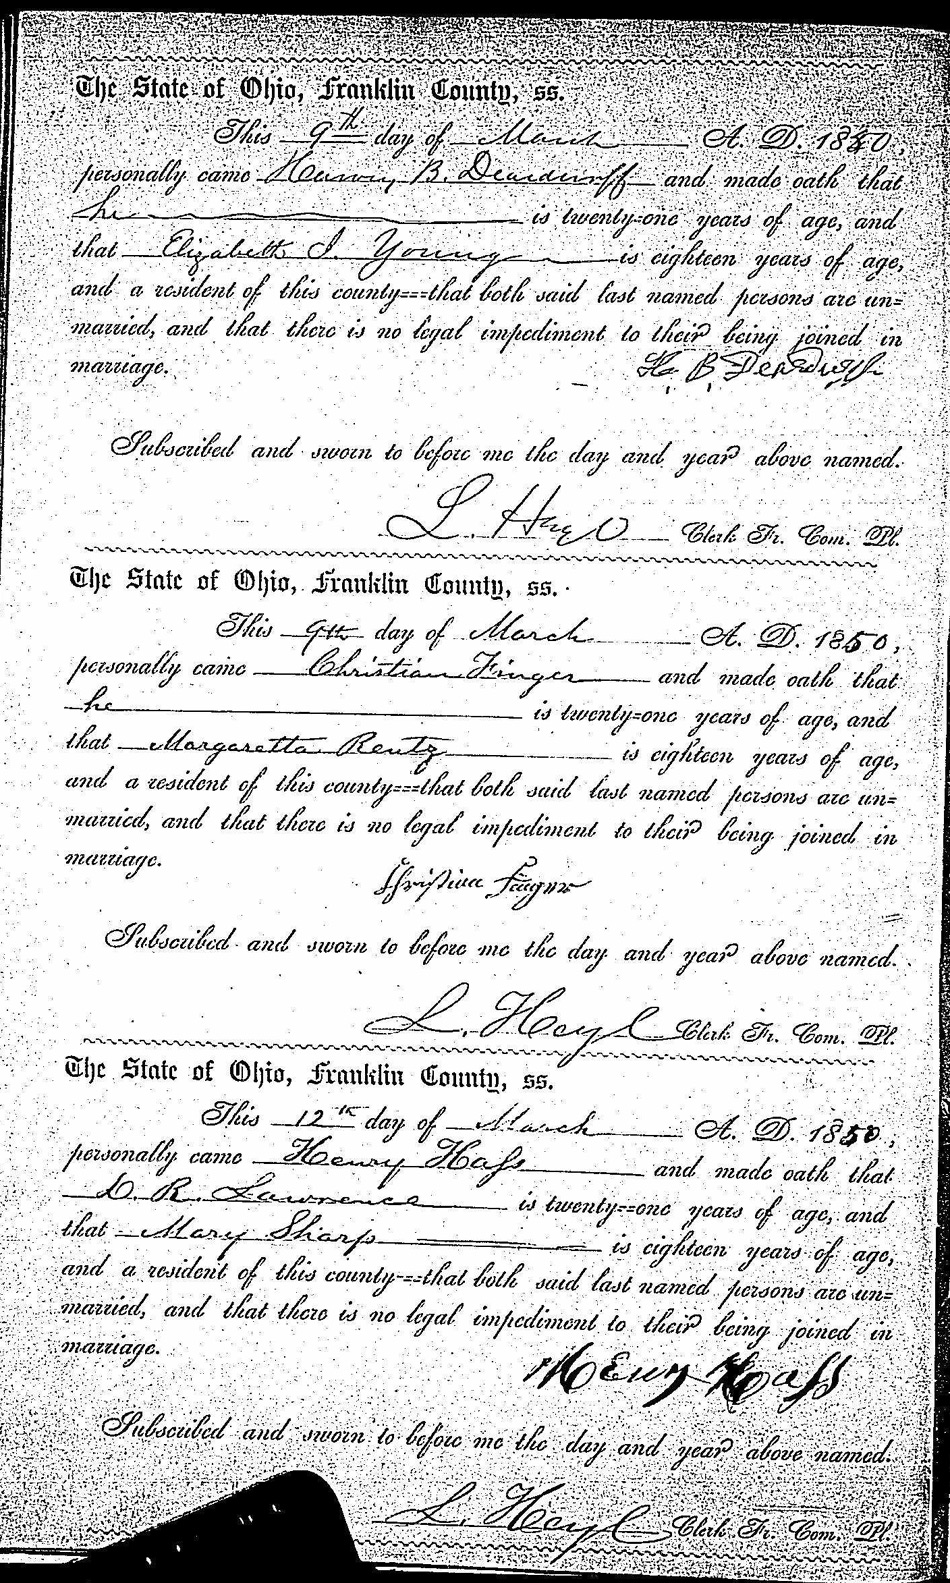 The State of Ohio, Franklin County, ss.
This 9th day of March A. D. 1850,
personally came Henry B. Deardurff and made oath that
he is twenty=one years of age, and
that Elizabeth I. Young is eighteen years of age,
and a resident of this county===that both said last named persons are un=
married, and that there is no legal impediment to their being joined in
marriage.
H. B. Deardurff
Subscribed and sworn to before me the day and year above named.
L. Heyl Clerk Fr. Com. Pl.
The State of Ohio, Franklin County, ss.
This 9th day of March A. D. 1850,
personally came Christian Finger and made oath that
he is twenty=one years of age, and
that Margaretta Rentz is eighteen years of age,
and a resident of this county===that both said last named persons are un=
married, and that there is no legal impediment to their being joined in
marriage.
Christian Finger
Subscribed and sworn to before me the day and year above named.
L. Heyl Clerk Fr. Com. Pl.
The State of Ohio, Franklin County, ss.
This 12th day of March A. D. 1850,
personally came Henry Hass and made oath that
D. R. Lawrence is twenty==one years of age, and
that Mary Sharp is eighteen years of age,
and a resident of this county===that both said last named persons are un=
married, and that there is no legal impediment to their being joined in
marriage.
Henry Hass
Subscribed and sworn to before me the day and year above named.
L. Heyl Clerk Fr. Com. Pl.